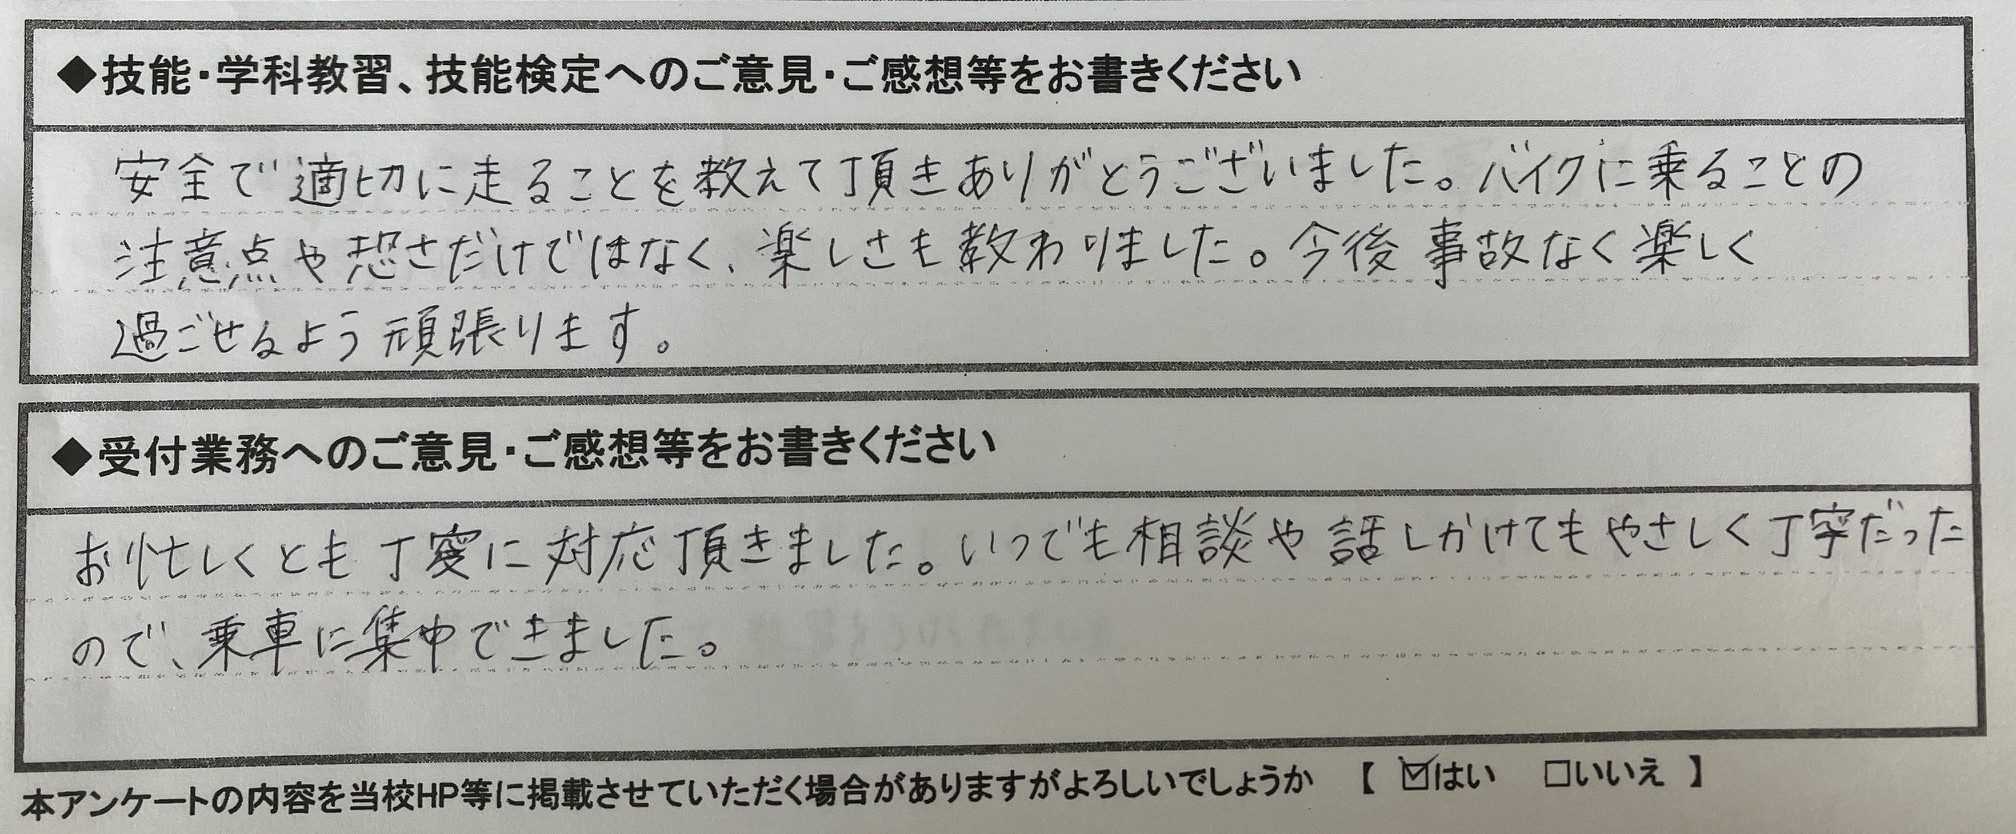 ◆技能・学科教習、技能検定へのご意見・ご感想等をお書きください
安全で適切に走ることを教えて頂きありがとうございました。バイクに乗ることの
注意点や恐さだけではなく、楽しさも教わりました。今後事故なく楽しく
過ごせるよう頑張ります。
◆受付業務へのご意見・ご感想等をお書きください
お忙しくとも丁寧に対応頂きました。いつでも相談や話しかけてもやさしく丁寧だった
ので、乗車に集中できました。
本アンケートの内容を当校HP等に掲載させていただく場合がありますがよろしいでしょうか 【 ☑はい □いいえ 】